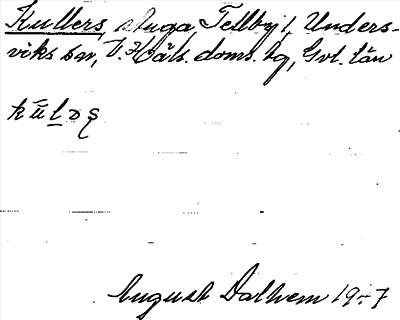 Kullers, stuga, Tellbyj 1, Unders-
viks sn, V. Häls. doms. hg, Gvl. län
kūləş
August Dalhem 19-7